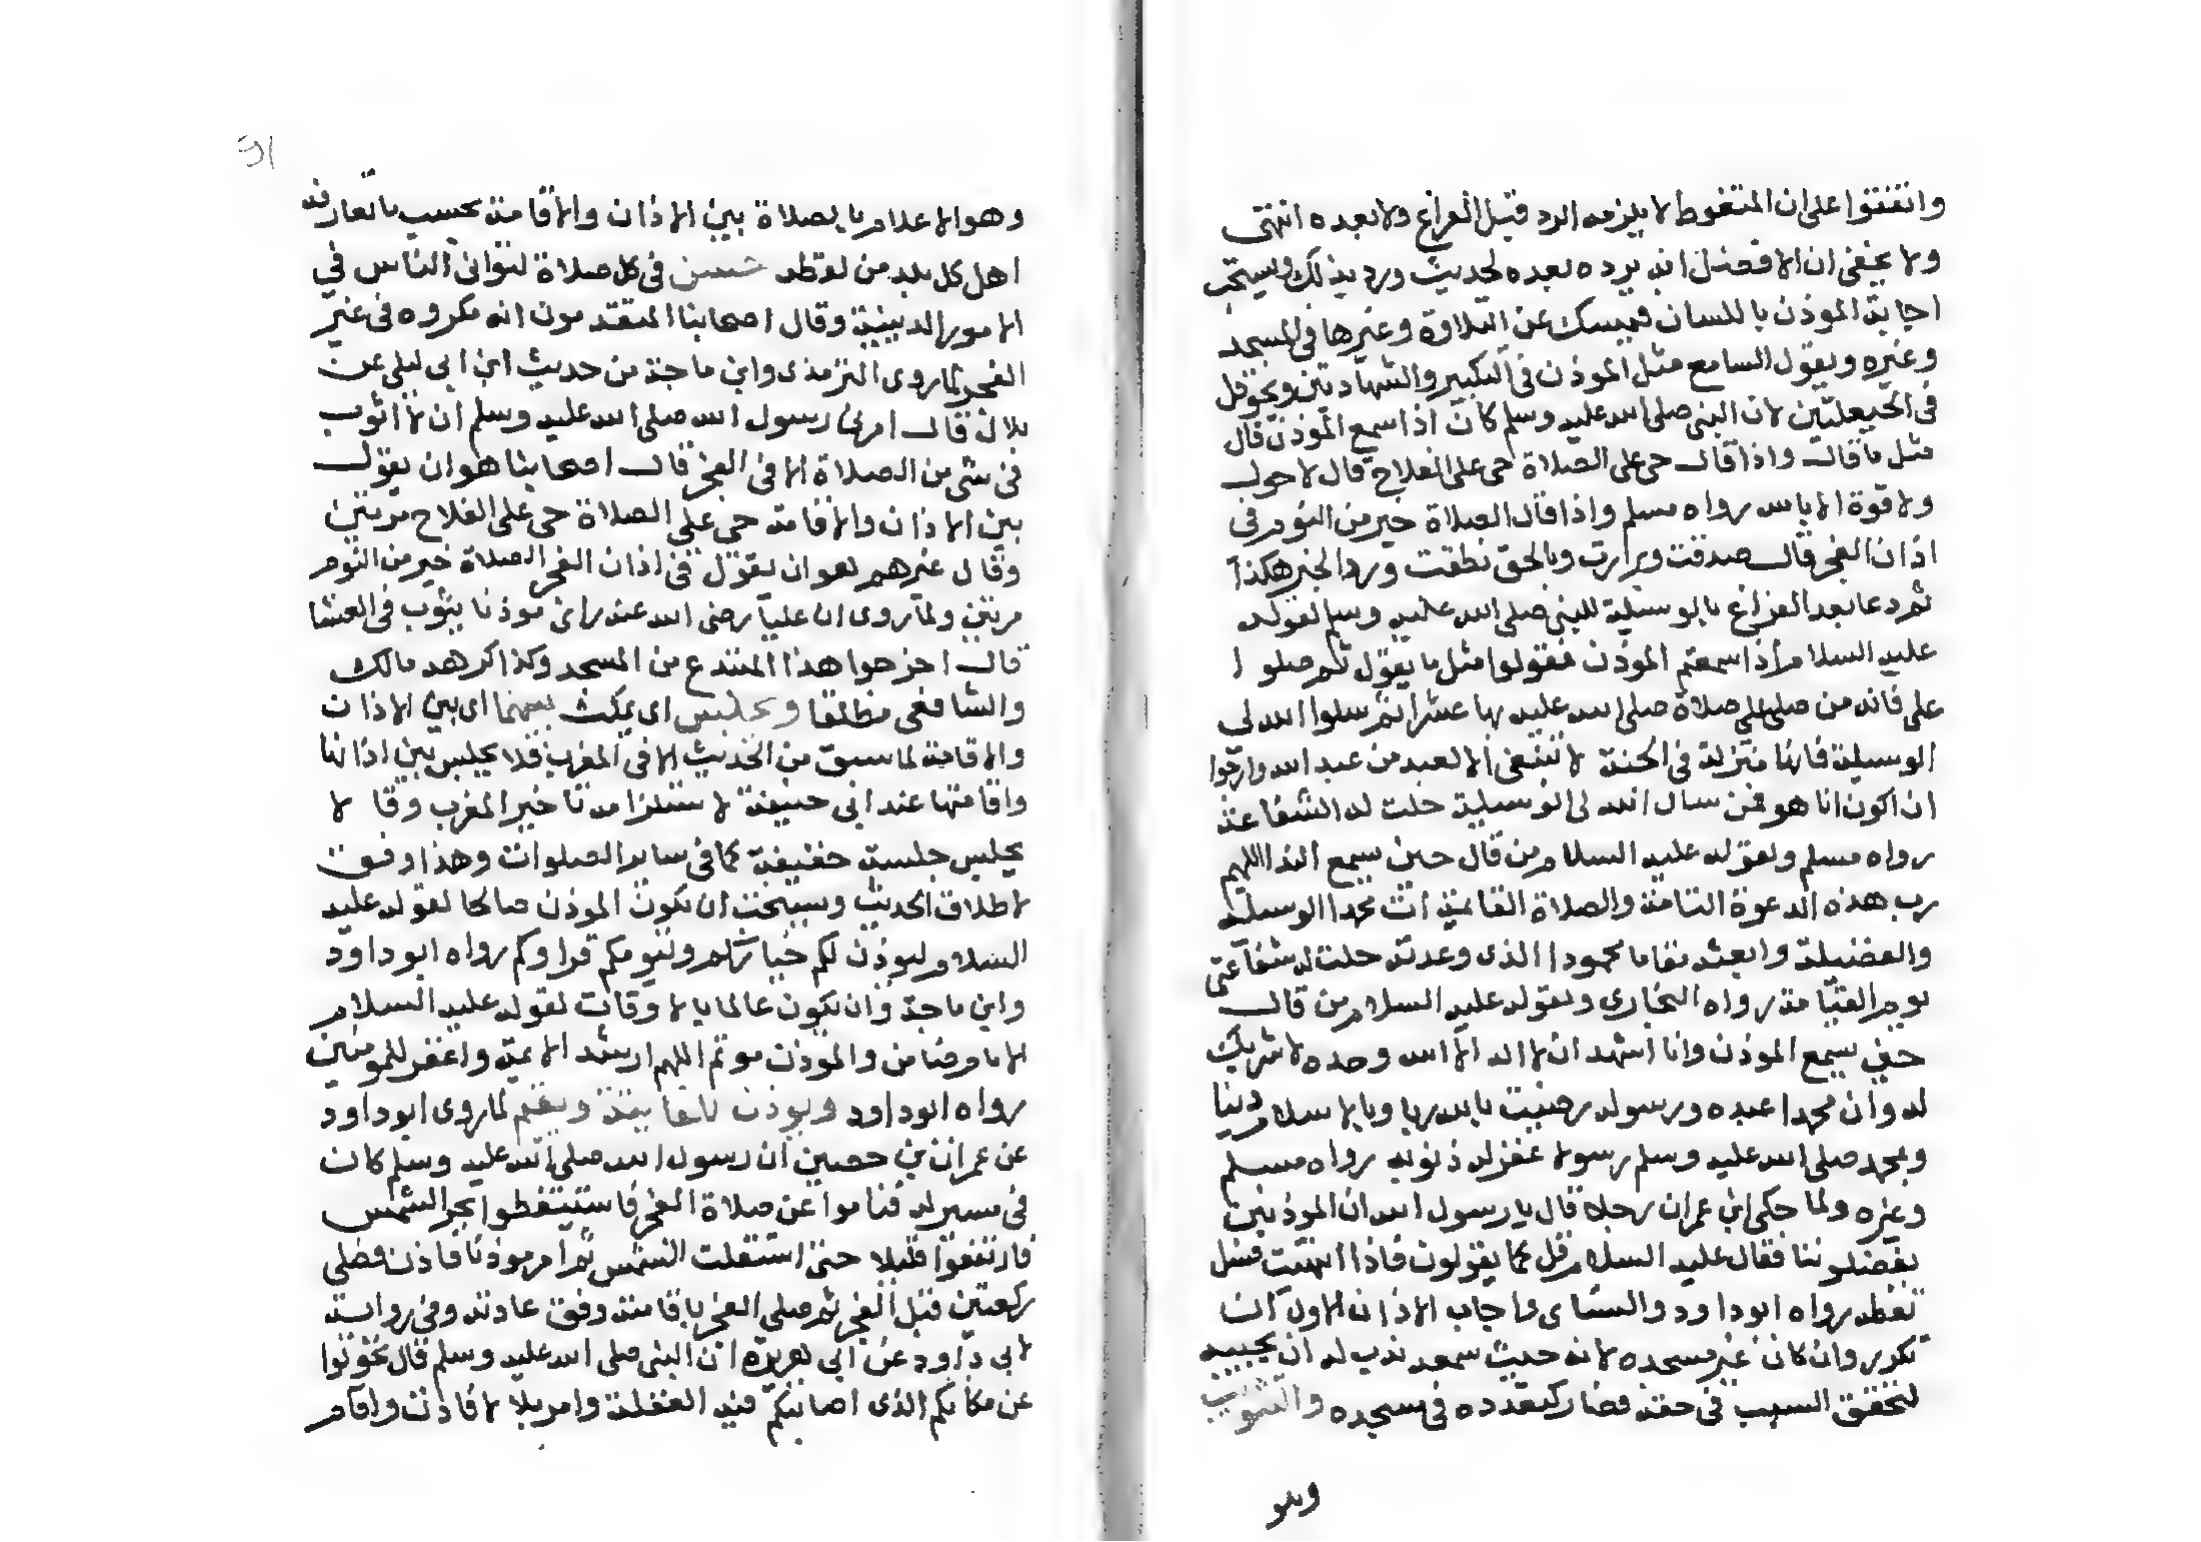 واتفقوا على ان المتغوط لا يلزمه الرد قبل الفراغ ولا بعده انتهى
ولا يخفى ان الافضل انه يرده بعده لحديث ورد بذلك ويستحب
اجابة الموذن باللسان فيمسك عن التلاوة وغيرها في المسجد
وغيره ويقول السامع مثل الموذن في التكبير والشهادتين ويحوقل
في الحيعلتين لان النبي صلى الله عليه وسلم كان اذا سمع الموذن قال
مثل ما قال واذا قال حي على الصلاة حي على الفلاح قال لا حول
ولا قوة الا بالله رواه مسلم واذا قال الصلاة خير من النوم في
اذان الفجر قال صدقت وبرارت وبالحق نطقت ورد الخبر هكذا
ثم دعا بعد الفراغ بالوسيلة للنبي صلى الله عليه وسلم لقوله
عليه السلام اذا سمعتم الموذن فقولوا مثل ما يقول ثم صلوا
على فانه من صلى على صلاة صلى الله عليه بها عشرا ثم سلوا الله لي
الوسيلة فانها منزلة في الجنة لا تنبغي الا لعبد من عبد الله وارجوا
ان اكون انا هو فمن سال الله لي الوسيلة حلت له الشفاعة
رواه مسلم ولقوله عليه السلام من قال حين يسمع الندا اللهم
رب هذه الدعوة التامة والصلاة القائمة ات محمدا الوسيلة
والفضيلة وابعثه مقاما محمودا الذي وعدته حلت له شفاعتي
يوم القيامة رواه البخاري ولقوله عليه السلام من قال
حين يسمع الموذن وانا اشهد ان لا اله الا الله وحده لا شريك
له وان محمدا عبده ورسوله رضيت بالله ربا وبالاسلام دينا
وبمحمد صلى الله عليه وسلم رسولا غفر له ذنوبه رواه مسلم
وغيره ولما حكى ابن عمر ان رجلا قال يا رسول الله ان الموذنين
يفضلوننا فقال عليه السلام قل كما يقولون فاذا انتهيت فسل
تعطه رواه ابو داود والنساي واجاب الاذان الاول ان
تكرر وان كان غير مسجده لانه حيث سمعه ندب له ان يجيبه
لتحقق السبب في حقه فصار كتعدده في مسجده والتثويب
وهو
وهو الاعلام بالصلاة بين الاذان والاقامة بحسب ما تعارفه
اهل كل بلد من لفظه حسن في كل صلاة لتواني الناس في
الامور الدينية وقال اصحابنا المتقدمون انه مكروه في غير
الفجر لما روى الترمذي وابن ماجة من حديث ابن ابي ليلى عن
بلال قال امرني رسول الله صلى الله عليه وسلم ان لا اثوب
في شي من الصلاة الا في الفجر قال اصحابنا هو ان يقول
بين الاذان والاقامة حي على الصلاة حي على الفلاح مرتين
وقال غيرهم هو ان يقول في اذان الفجر الصلاة خير من النوم
مرتين ولما روى ان عليا رضى الله عنه راى موذنا يثوب في العشا
قال اخرجوا هذا المبتدع من المسجد وكذا كرهه مالك
والشافعي مطلقا ويجلس اى يمكث بينهما اى بين الاذان
والاقامة لما سبق من الحديث الا في المغرب فلا يجلس بين اذانها
واقامتها عند ابي حنيفة لاستلزامه تاخير المغرب وقالا
يجلس جلسة خفيفة كما في ساير الصلوات وهذا وفق
لاطلاق الحديث ويستحب ان يكون الموذن صالحا لقوله عليه
السلام ليوذن لكم خياركم وليومكم قراوكم رواه ابو داود
وابن ماجة وان يكون عالما بالاوقات لقوله عليه السلام
الامام ضامن والموذن موتمن اللهم ارشد الائمة واغفر للمومنين
رواه ابو داود ويوذن للفايتة ويقيم لما روى ابو داود
عن عمران بن حصين ان رسول الله صلى الله عليه وسلم كان
في مسير له فناموا عن صلاة الفجر فاستيقظوا بحر الشمس
فارتفعوا قليلا حتى استقلت الشمس ثم امر موذنا فاذن فصلى
ركعتين قبل الفجر ثم صلى الفجر باقامة وفق عادته وفي رواية
لابي داود عن ابي هريرة ان النبي صلى الله عليه وسلم قال تحولوا
عن مكانكم الذى اصابتكم فيه الغفلة وامر بلالا فاذن واقام